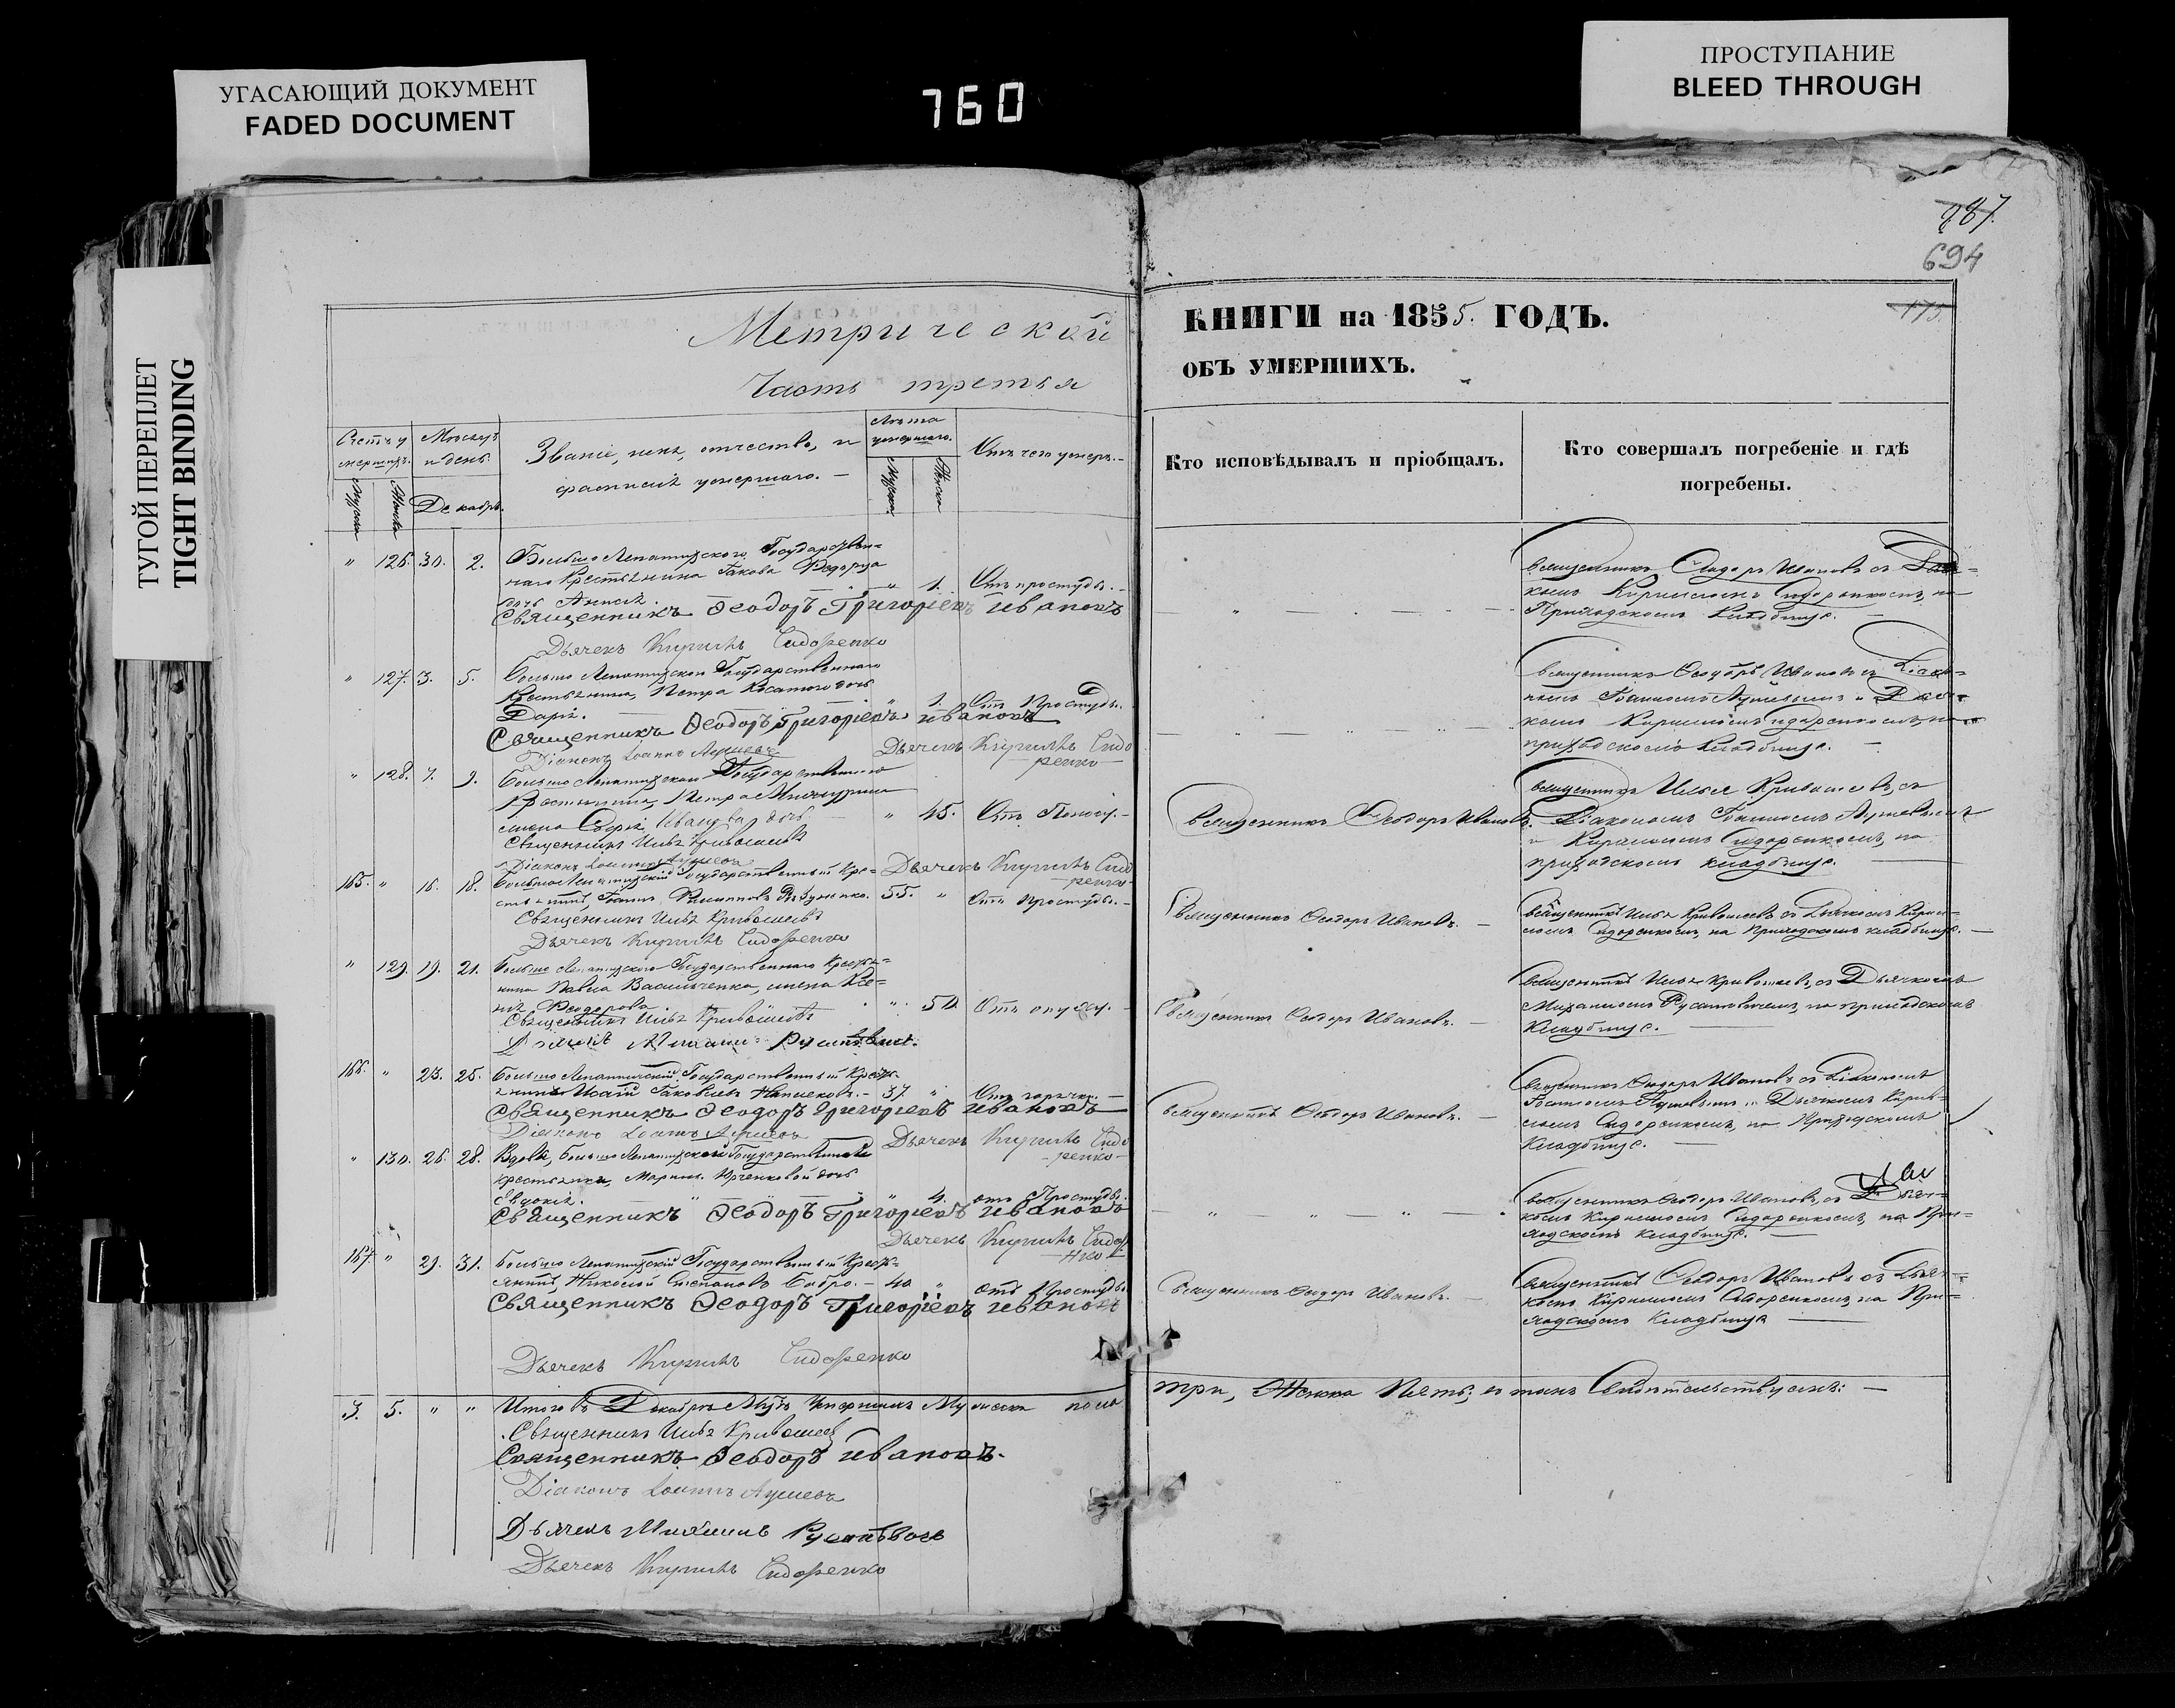 УГАСАЮЩИЙ ДОКУМЕНТ
FADED DOCUMENT
760
ПРОСТУПАНИЕ
BLEED THROUGH
ТУГОЙ ПЕРЕПЛЕТ
TIGHT BINDING
287.
694
175.
Метрической
КНИГИ на 1855. ГОДЪ.
Часть третья
ОБЪ УМЕРШИХЪ.
Счетъ умершихъ.
Мужска
Женска
Мѣсяцъ и день.
Декабрь.
Званіе, имя, отчество, и
фамилія умершаго.
Лѣта умершаго.
Мужска
Женска
Отъ чего умеръ.
Кто исповѣдывалъ и пріобщалъ.
Кто совершалъ погребеніе и гдѣ
погребены.
" 126. 30. 2. Больше Лепатихскаго Государствен=
наго Крестьянина Іакова Федорца
дочь " 1. Отъ простуды.
Священникъ Ѳеодоръ Григоріевъ Ивановъ
Дьячекъ Кириллъ Сидоренко
Священникъ Ѳеодоръ Ивановъ съ
Кирилломъ Сидоренкомъ, на
Приходскомъ Кладбищѣ.
" 127. 3. 5. Больше Лепатихскаго Государственнаго
Крестьянина, Петра дочь
Дарія. " 1. Отъ Простуды.
Священникъ Ѳеодоръ Григоріевъ Ивановъ
Діаконъ Іоаннъ
Дьячекъ Кириллъ Сидо
ренко
Священникъ Ѳеодоръ Ивановъ съ Діако=
номъ Іоанномъ и
комъ Кирилломъ Сидоренкомъ на
приходскомъ Кладбищѣ.
" 128. 7. 9. Больше Лепатихскаго Государственнаго
Крестьянина, Петра
жена Софія Иванова дочь " 45. Отъ
Священникъ Илья Кривошеевъ
Діаконъ Іоаннъ
Дьячекъ Кириллъ Сидо
ренко
Священникъ Ѳеодоръ Ивановъ.
Священникъ Илья Кривошеевъ, съ
Діакономъ Іоанномъ
и Кирилломъ Сидоренкомъ, на
приходскомъ кладбищѣ.
165. " 16. 18. Больше Лепатихскій Государственный Кре=
стьянинъ, Іоаннъ Филипповъ 55. " Отъ простуды.
Священникъ Илья Кривошеевъ
Дьячекъ Кириллъ Сидоренко
Священникъ Ѳеодоръ Ивановъ.
Священникъ Илья Кривошеевъ съ Дьячкомъ Кирил=
ломъ Сидоренкомъ, на Приходскомъ кладбищѣ.
" 129. 19. 21. Больше Лепатихскаго Государственнаго Крестья=
нина Павла Васильченка, жена Ксе=
нія Федорова. " 50 Отъ
Священникъ Илья Кривошеевъ
Дьячекъ
Священникъ Ѳеодоръ Ивановъ.
Священникъ Илья Кривошеевъ, съ Дьячкомъ
Михаиломъ на приходскомъ
Кладбищѣ.
166. " 23. 25. Больше Лепатихскій Государственный Кресть=
янинъ Исаій Іаковлевъ 37 " Отъ горячки.
Священникъ Ѳеодоръ Григоріевъ Ивановъ
Діаконъ Іоаннъ
Дьячекъ Кириллъ Сидо
ренко
Священникъ Ѳеодоръ Ивановъ.
Священникъ Ѳеодоръ Ивановъ съ Діакономъ
Іоанномъ и Дьячкомъ Кирил=
ломъ Сидоренкомъ, на Приходскомъ
Кладбищѣ.
" 130. 26. 28. Вдовы, больше Лепатихской Государственной
крестьянки, Марины Юрченковой дочь
Евдокія. " 4. отъ Простуды.
Священникъ Ѳеодоръ Григоріевъ Ивановъ
Дьячекъ Кириллъ Сидо
Священникъ Ѳеодоръ Ивановъ, съ Дьяч=
комъ Кирилломъ Сидоренкомъ, на При=
ходскомъ кладбищѣ.
167. " 29. 31. Больше Лепатихскій Государственный Кресть=
янинъ, Николай Степановъ Бобро. 40 " отъ Простуды.
Священникъ Ѳеодоръ Григоріевъ Ивановъ
Дьячекъ Кириллъ Сидоренко
Священникъ Ѳеодоръ Ивановъ.
Священникъ Ѳеодоръ Ивановъ съ Дьяч=
комъ Кирилломъ Сидоренкомъ, на При=
ходскомъ Кладбищѣ
3. 5. " " Итого въ Декабрѣ Мцѣ Умершихъ Мужеска пола три, Женска Пять; въ томъ Свидѣтельствуемъ:
Священникъ Илья Кривошеевъ
Священникъ Ѳеодоръ Ивановъ.
Діаконъ Іоаннъ
Дьячекъ Михаилъ
Дьячекъ Кириллъ Сидоренко